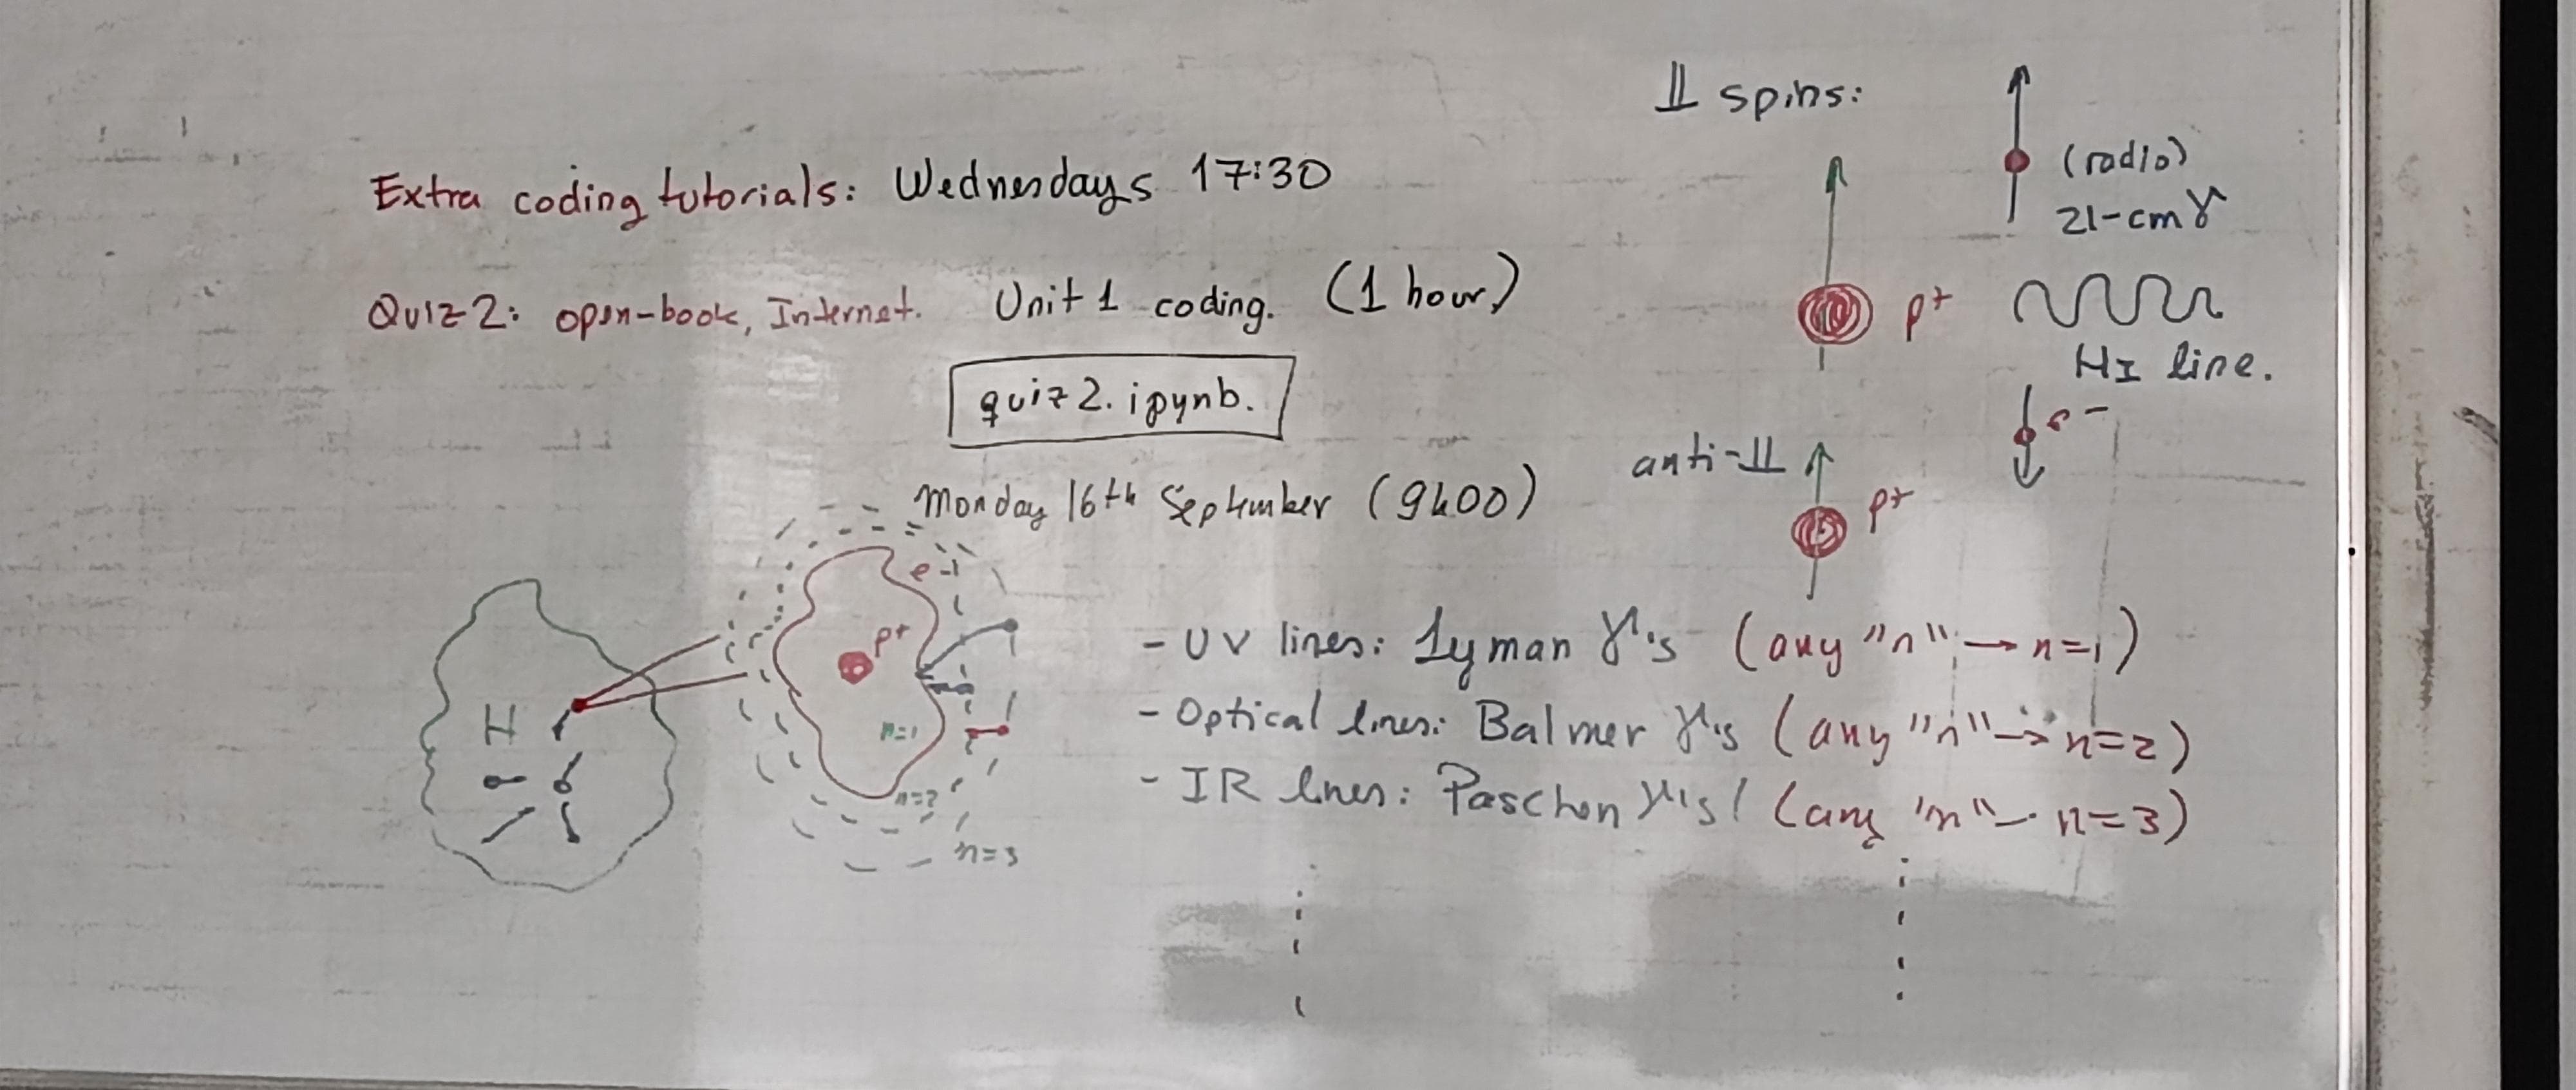 Extra coding tutorials: Wednesdays 17:30
Quiz 2: open-book, Internet. Unit 1 coding. (1 hour)
quiz2.ipynb.
Monday 16th September (9h00)
∥ spins:
(radio)
21-cm γ
p+
HI line.
e-
anti-∥
p+
e-
p+
H
n=1
n=2
n=3
- UV lines: Lyman γ's (any "n" → n=1)
- Optical lines: Balmer γ's (any "n" → n=2)
- IR lines: Paschen γ's (any "n" - n=3)